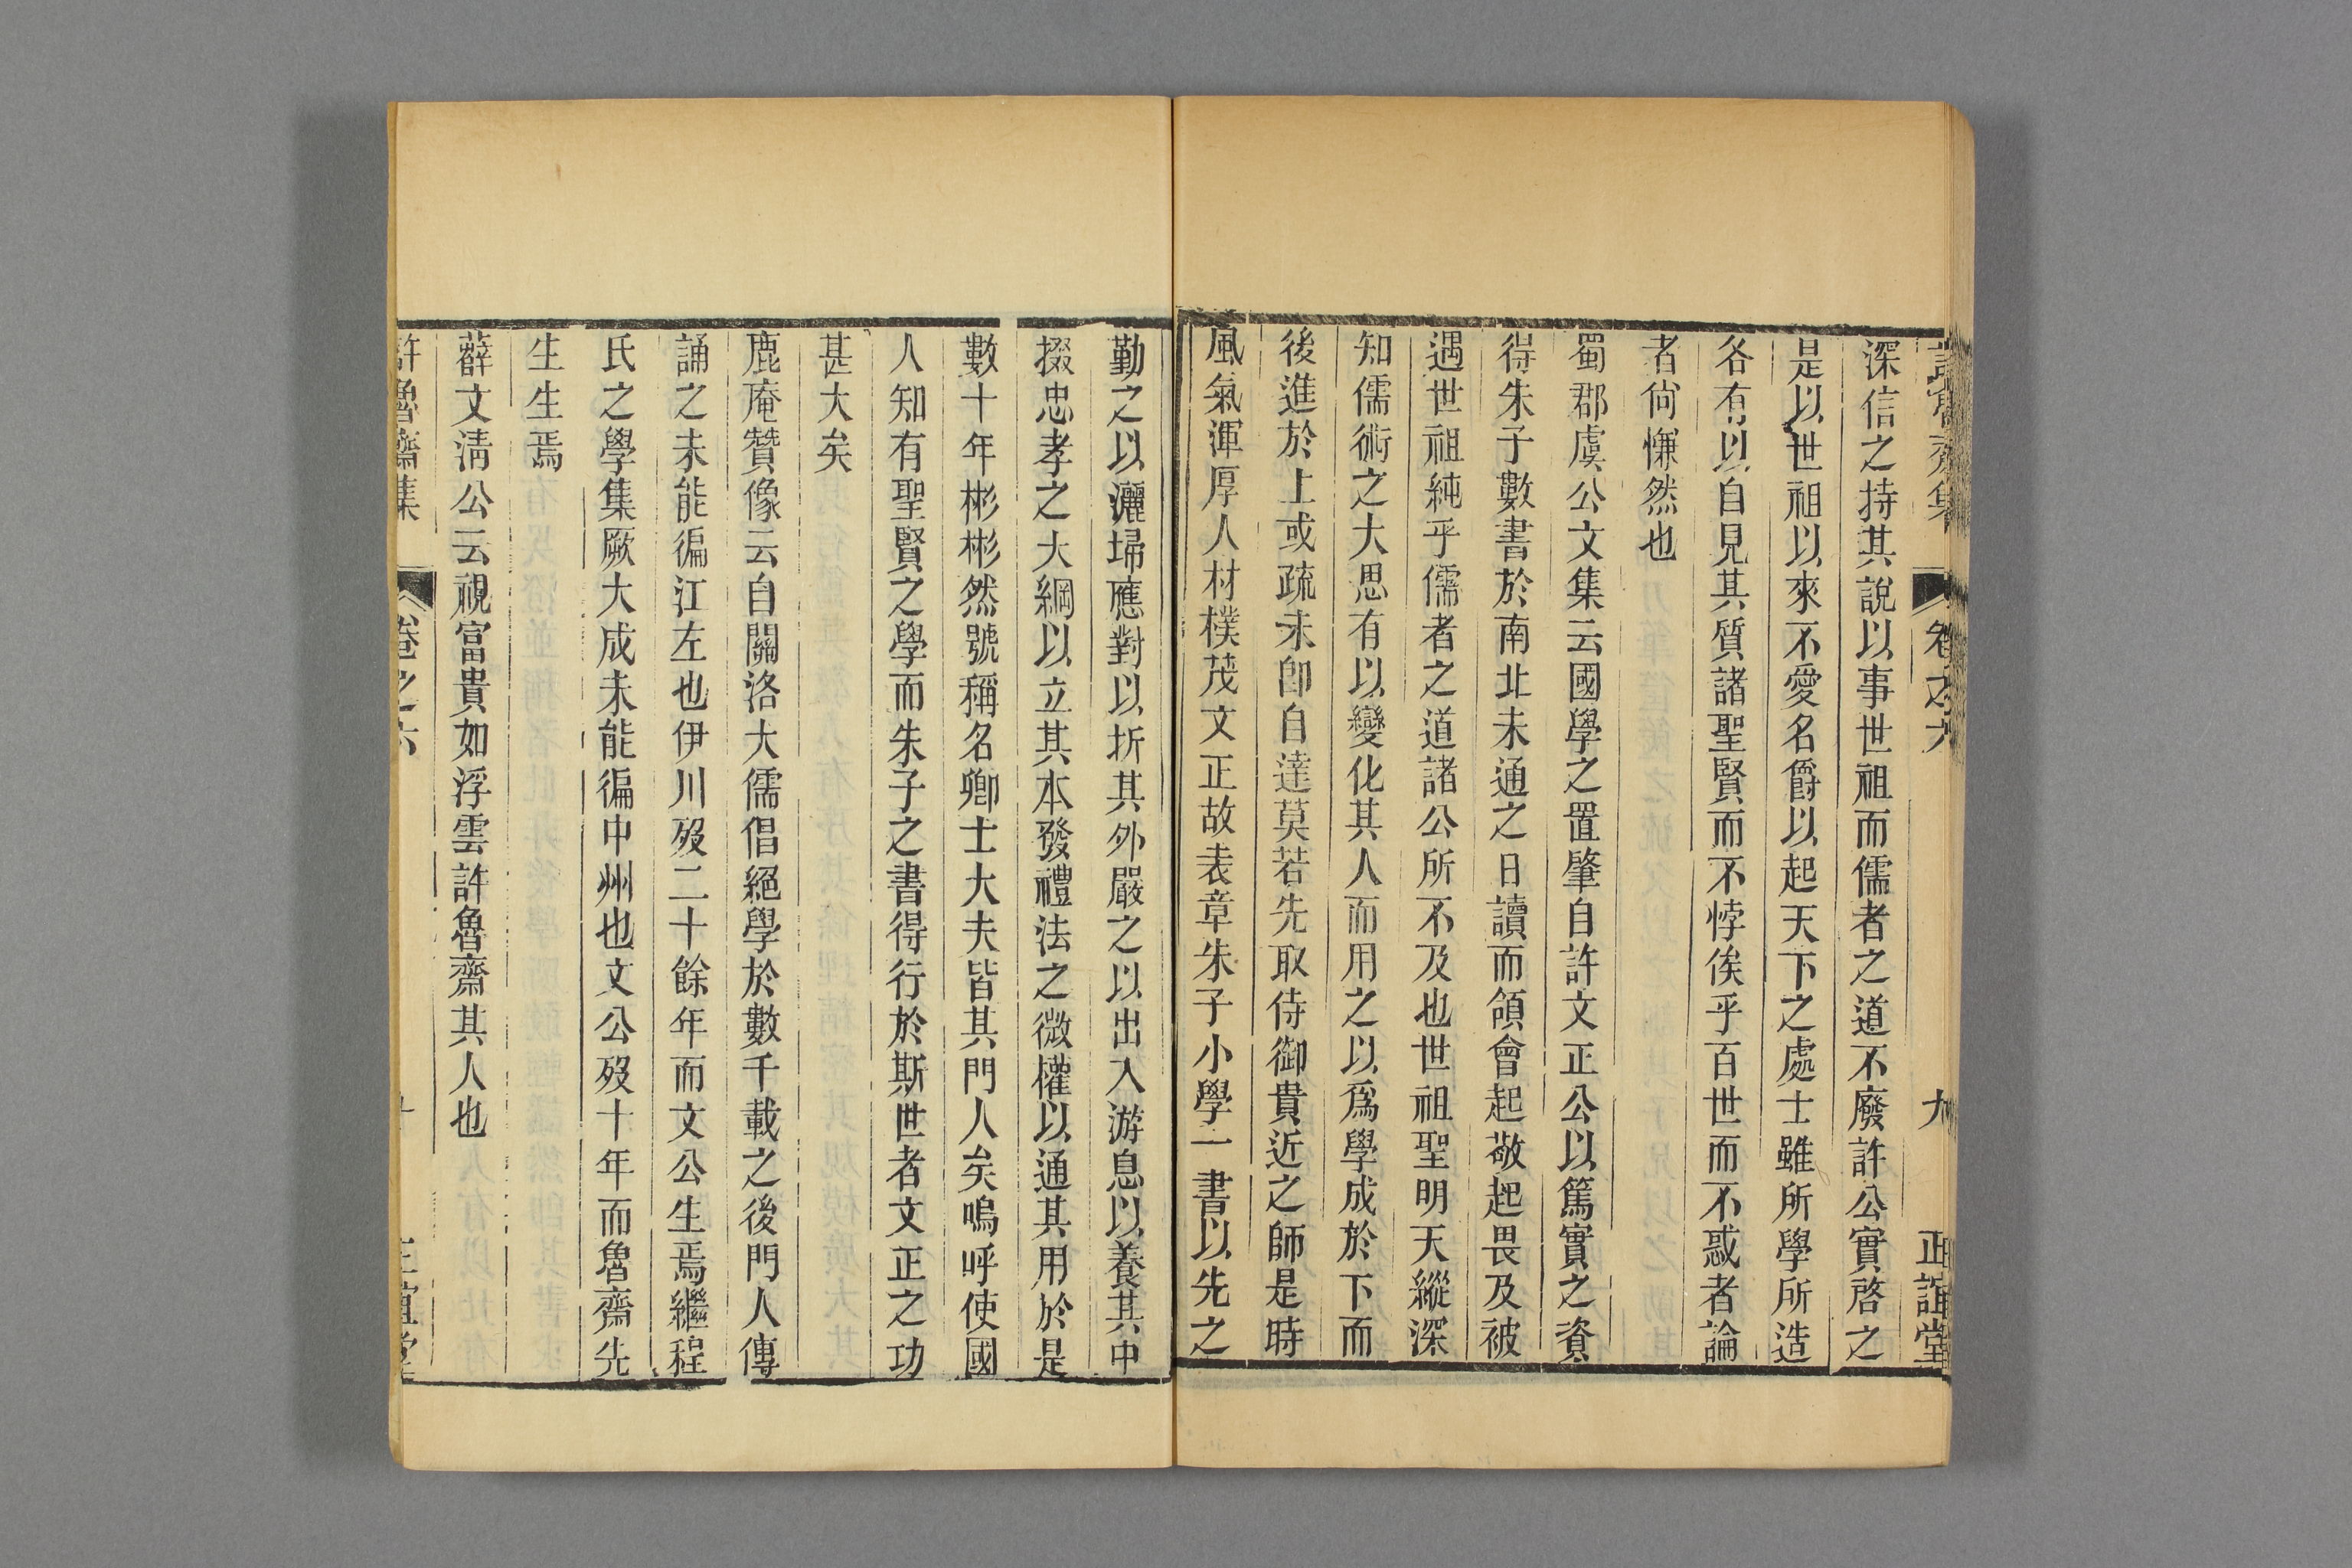 許魯齋集 卷之六 九 正誼堂
深信之持其說以事世祖而儒者之道不廢許公實啓之
是以世祖以來不愛名爵以起天下之處士雖所學所造
各有以自見其質諸聖賢而不悖俟乎百世而不惑者論
者尙慊然也
蜀郡虞公文集云國學之置肇自許文正公以篤實之資
得朱子數書於南北未通之日讀而領會起敬起畏及被
遇世祖純乎儒者之道諸公所不及也世祖聖明天縱深
知儒術之大思有以變化其人而用之以爲學成於下而
後進於上或疏未卽自達莫若先取侍御貴近之師是時
風氣渾厚人材樸茂文正故表章朱子小學一書以先之
勤之以灑埽應對以折其外嚴之以出入游息以養其中
掇忠孝之大綱以立其本發禮法之微權以通其用於是
數十年彬彬然號稱名卿士大夫皆其門人矣嗚呼使國
人知有聖賢之學而朱子之書得行於斯世者文正之功
甚大矣
鹿庵贊像云自關洛大儒倡絕學於數千載之後門人傳
誦之未能徧江左也伊川歿二十餘年而文公生焉繼程
氏之學集厥大成未能徧中州也文公歿十年而魯齋先
生生焉
薛文淸公云視富貴如浮雲許魯齋其人也
許魯齋集 卷之六 十 正誼堂